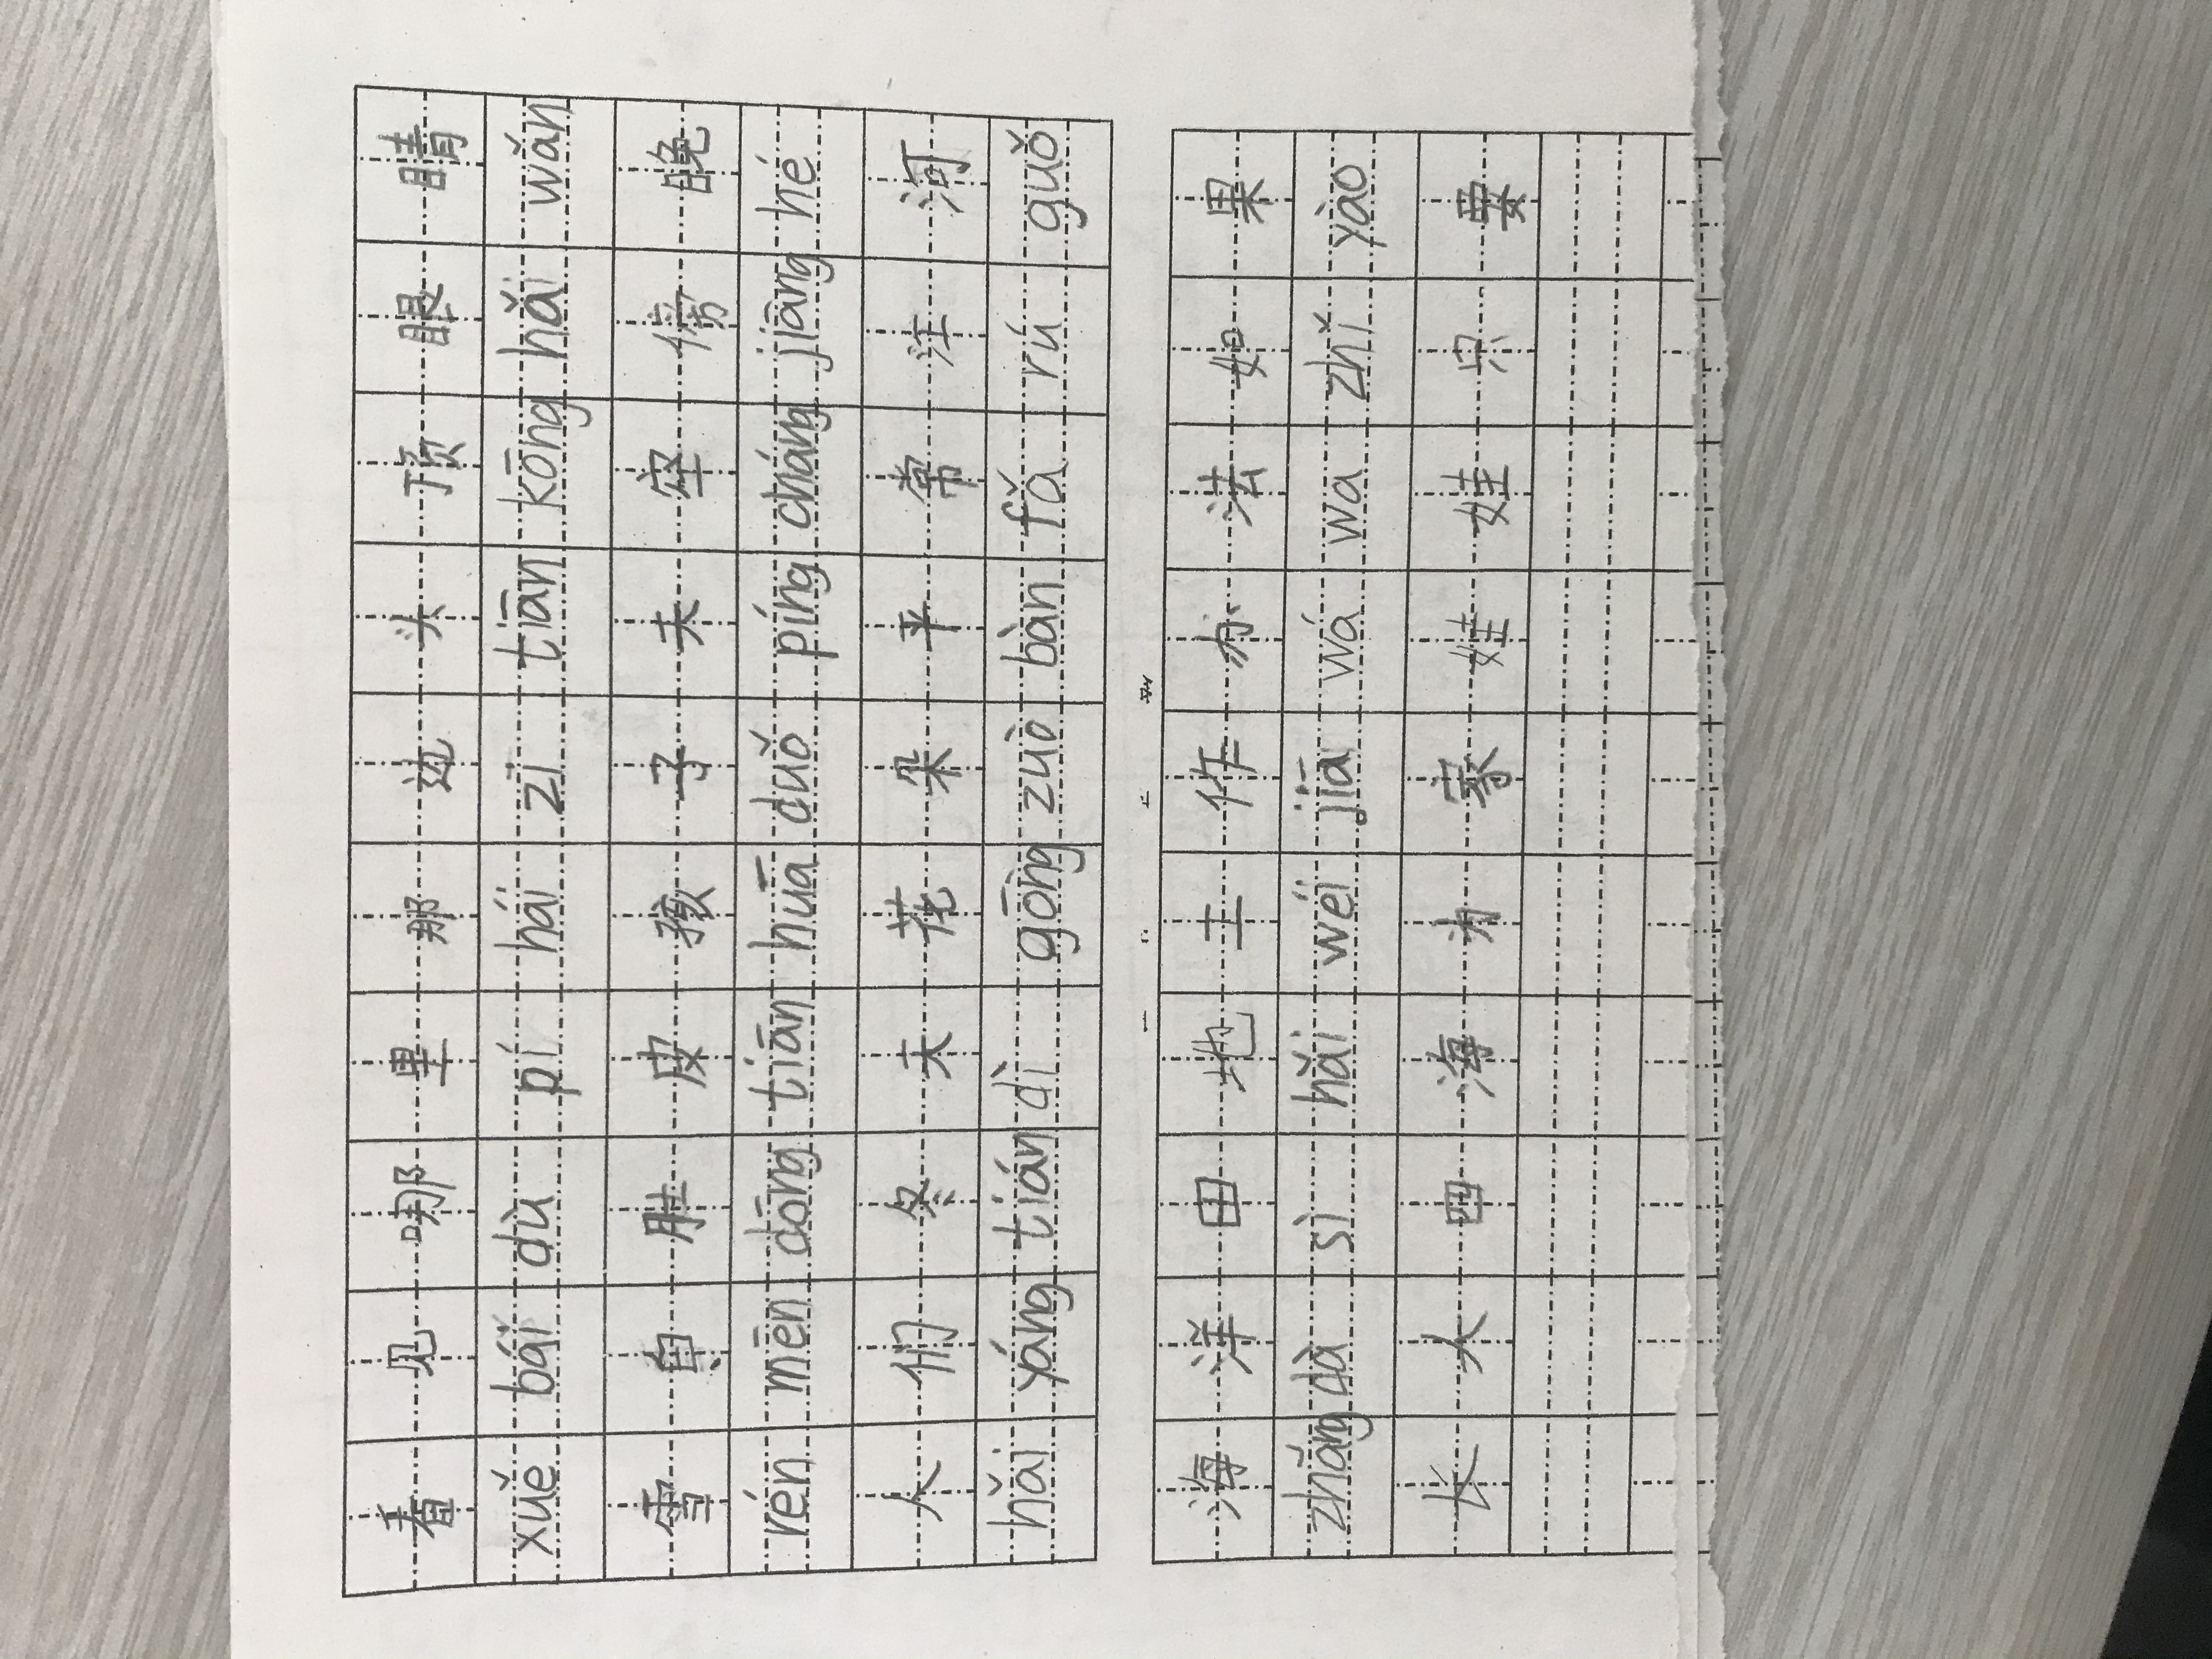 看 见 哪 里 那 边 头 顶 眼 睛
xuě bái dù pí hái zi tiān kōng hǎi wǎn
雪 白 肚 皮 孩 子 天 空 傍 晚
rén mēn dōng tiān huā duǒ píng cháng jiāng hé
人 们 冬 天 花 朵 平 常 江 河
hǎi yáng tián dì gōng zuò bàn fǎ rú guǒ
海 洋 田 地 工 作 办 法 如 果
zhǎng dà sì hǎi wéi jiā wá wa zhǐ yào
长 大 四 海 为 家 娃 娃 只 要